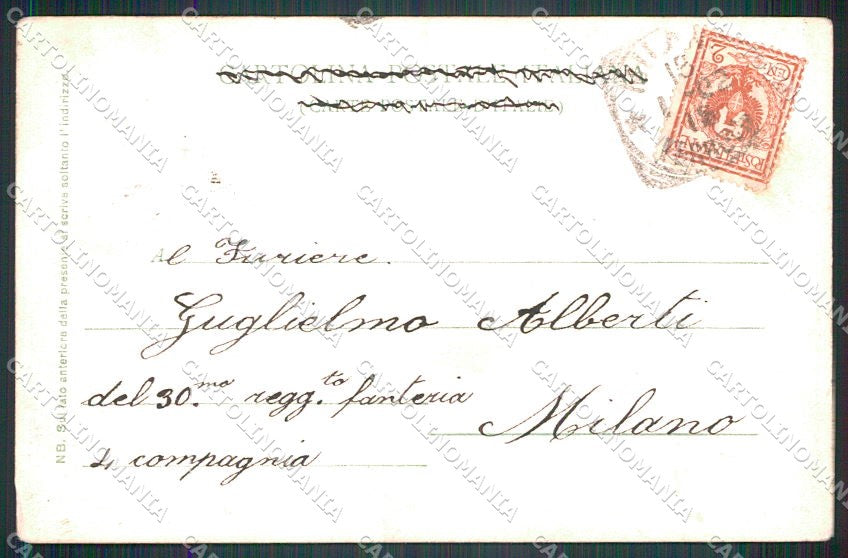 CARTOLINA POSTALE ITALIANA
(CARTE POSTALE D'ITALIE)
Al Furiere.
Guglielmo Alberti
del 30.mo regg.to fanteria
Milano
4 compagnia
NB. Sul lato anteriore della presente si scrive soltanto l'indirizzo
2
CARTOLINOMANIA